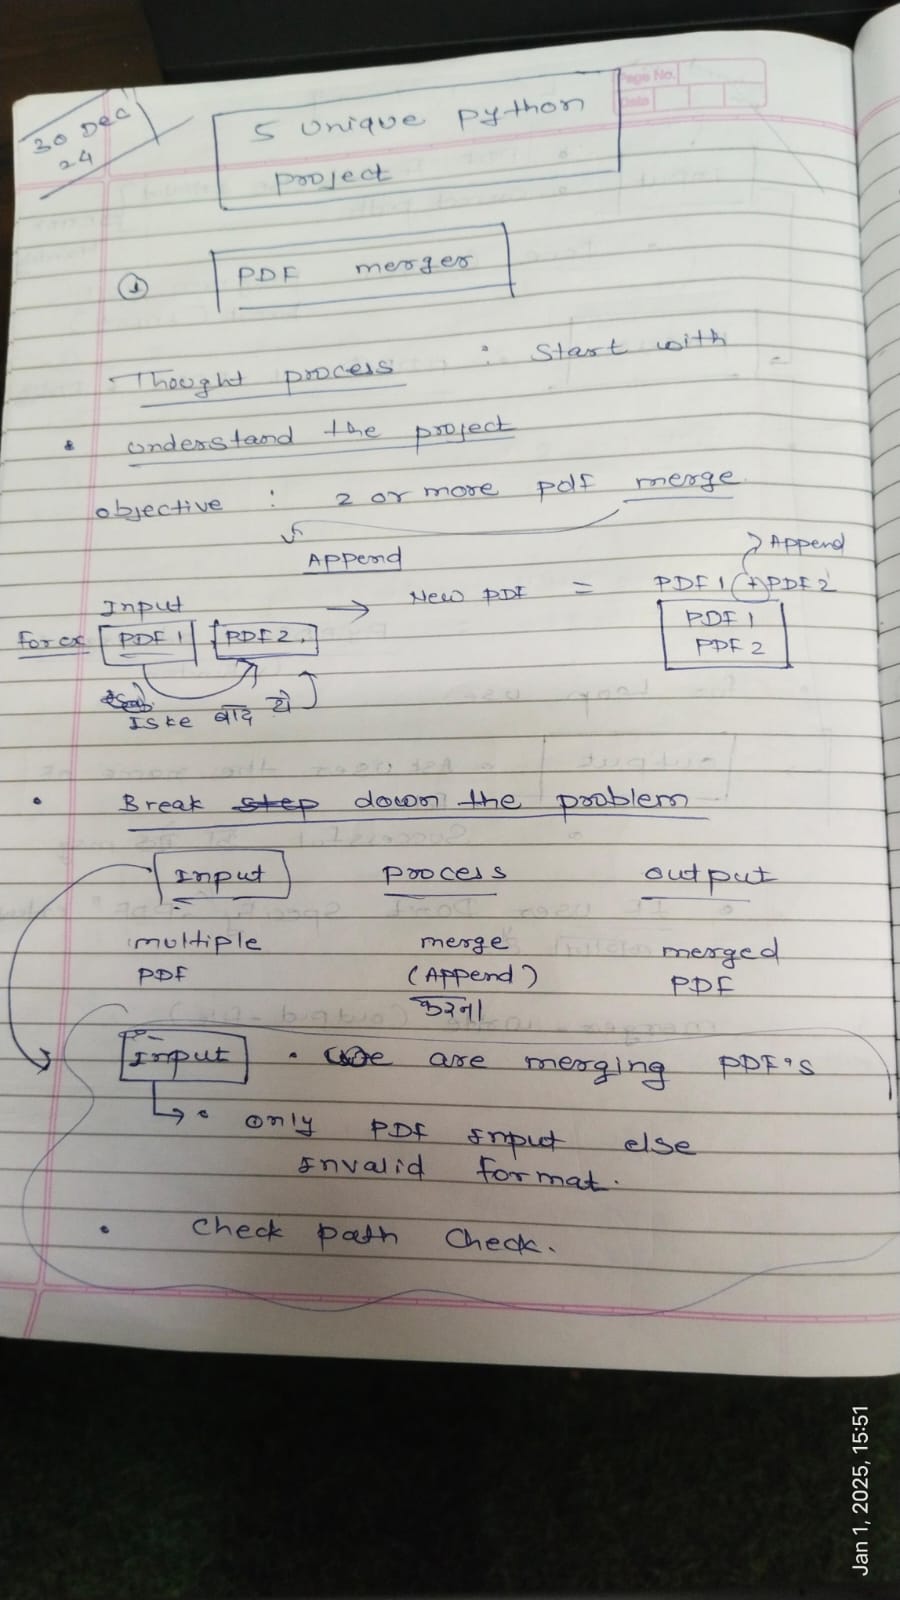 30 Dec
24
5 Unique python
project
Page No.
Date
① PDF merger
Thought process : Start with
• understand the project
objective : 2 or more pdf merge
Append
Append
Input → New PDF = PDF 1 + PDF 2
For ex PDF 1 PDF 2,
PDF 1
PDF 2
Iske बाद ये
• Break step down the problem
Input process output
multiple merge merged
PDF (Append) PDF
करना
Input • We are merging PDF's
→ • only PDF Input else
Invalid format.
• Check path Check.
Jan 1, 2025, 15:51